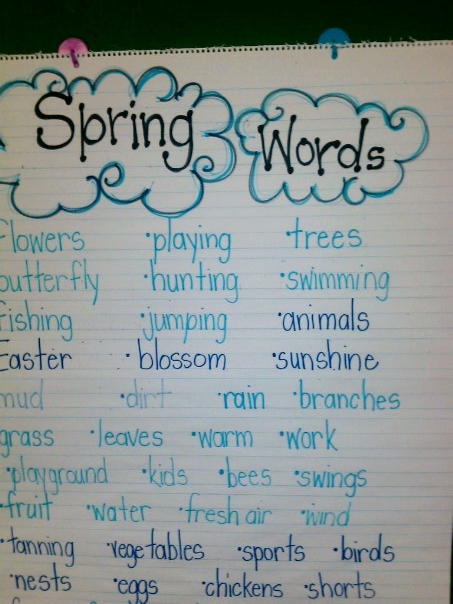 Spring Words
flowers •playing •trees
butterfly •hunting •swimming
fishing •jumping •animals
Easter •blossom •sunshine
mud •dirt •rain •branches
grass •leaves •warm •work
•playground •kids •bees •swings
•fruit •water •fresh air •wind
•tanning •vegetables •sports •birds
•nests •eggs •chickens •shorts